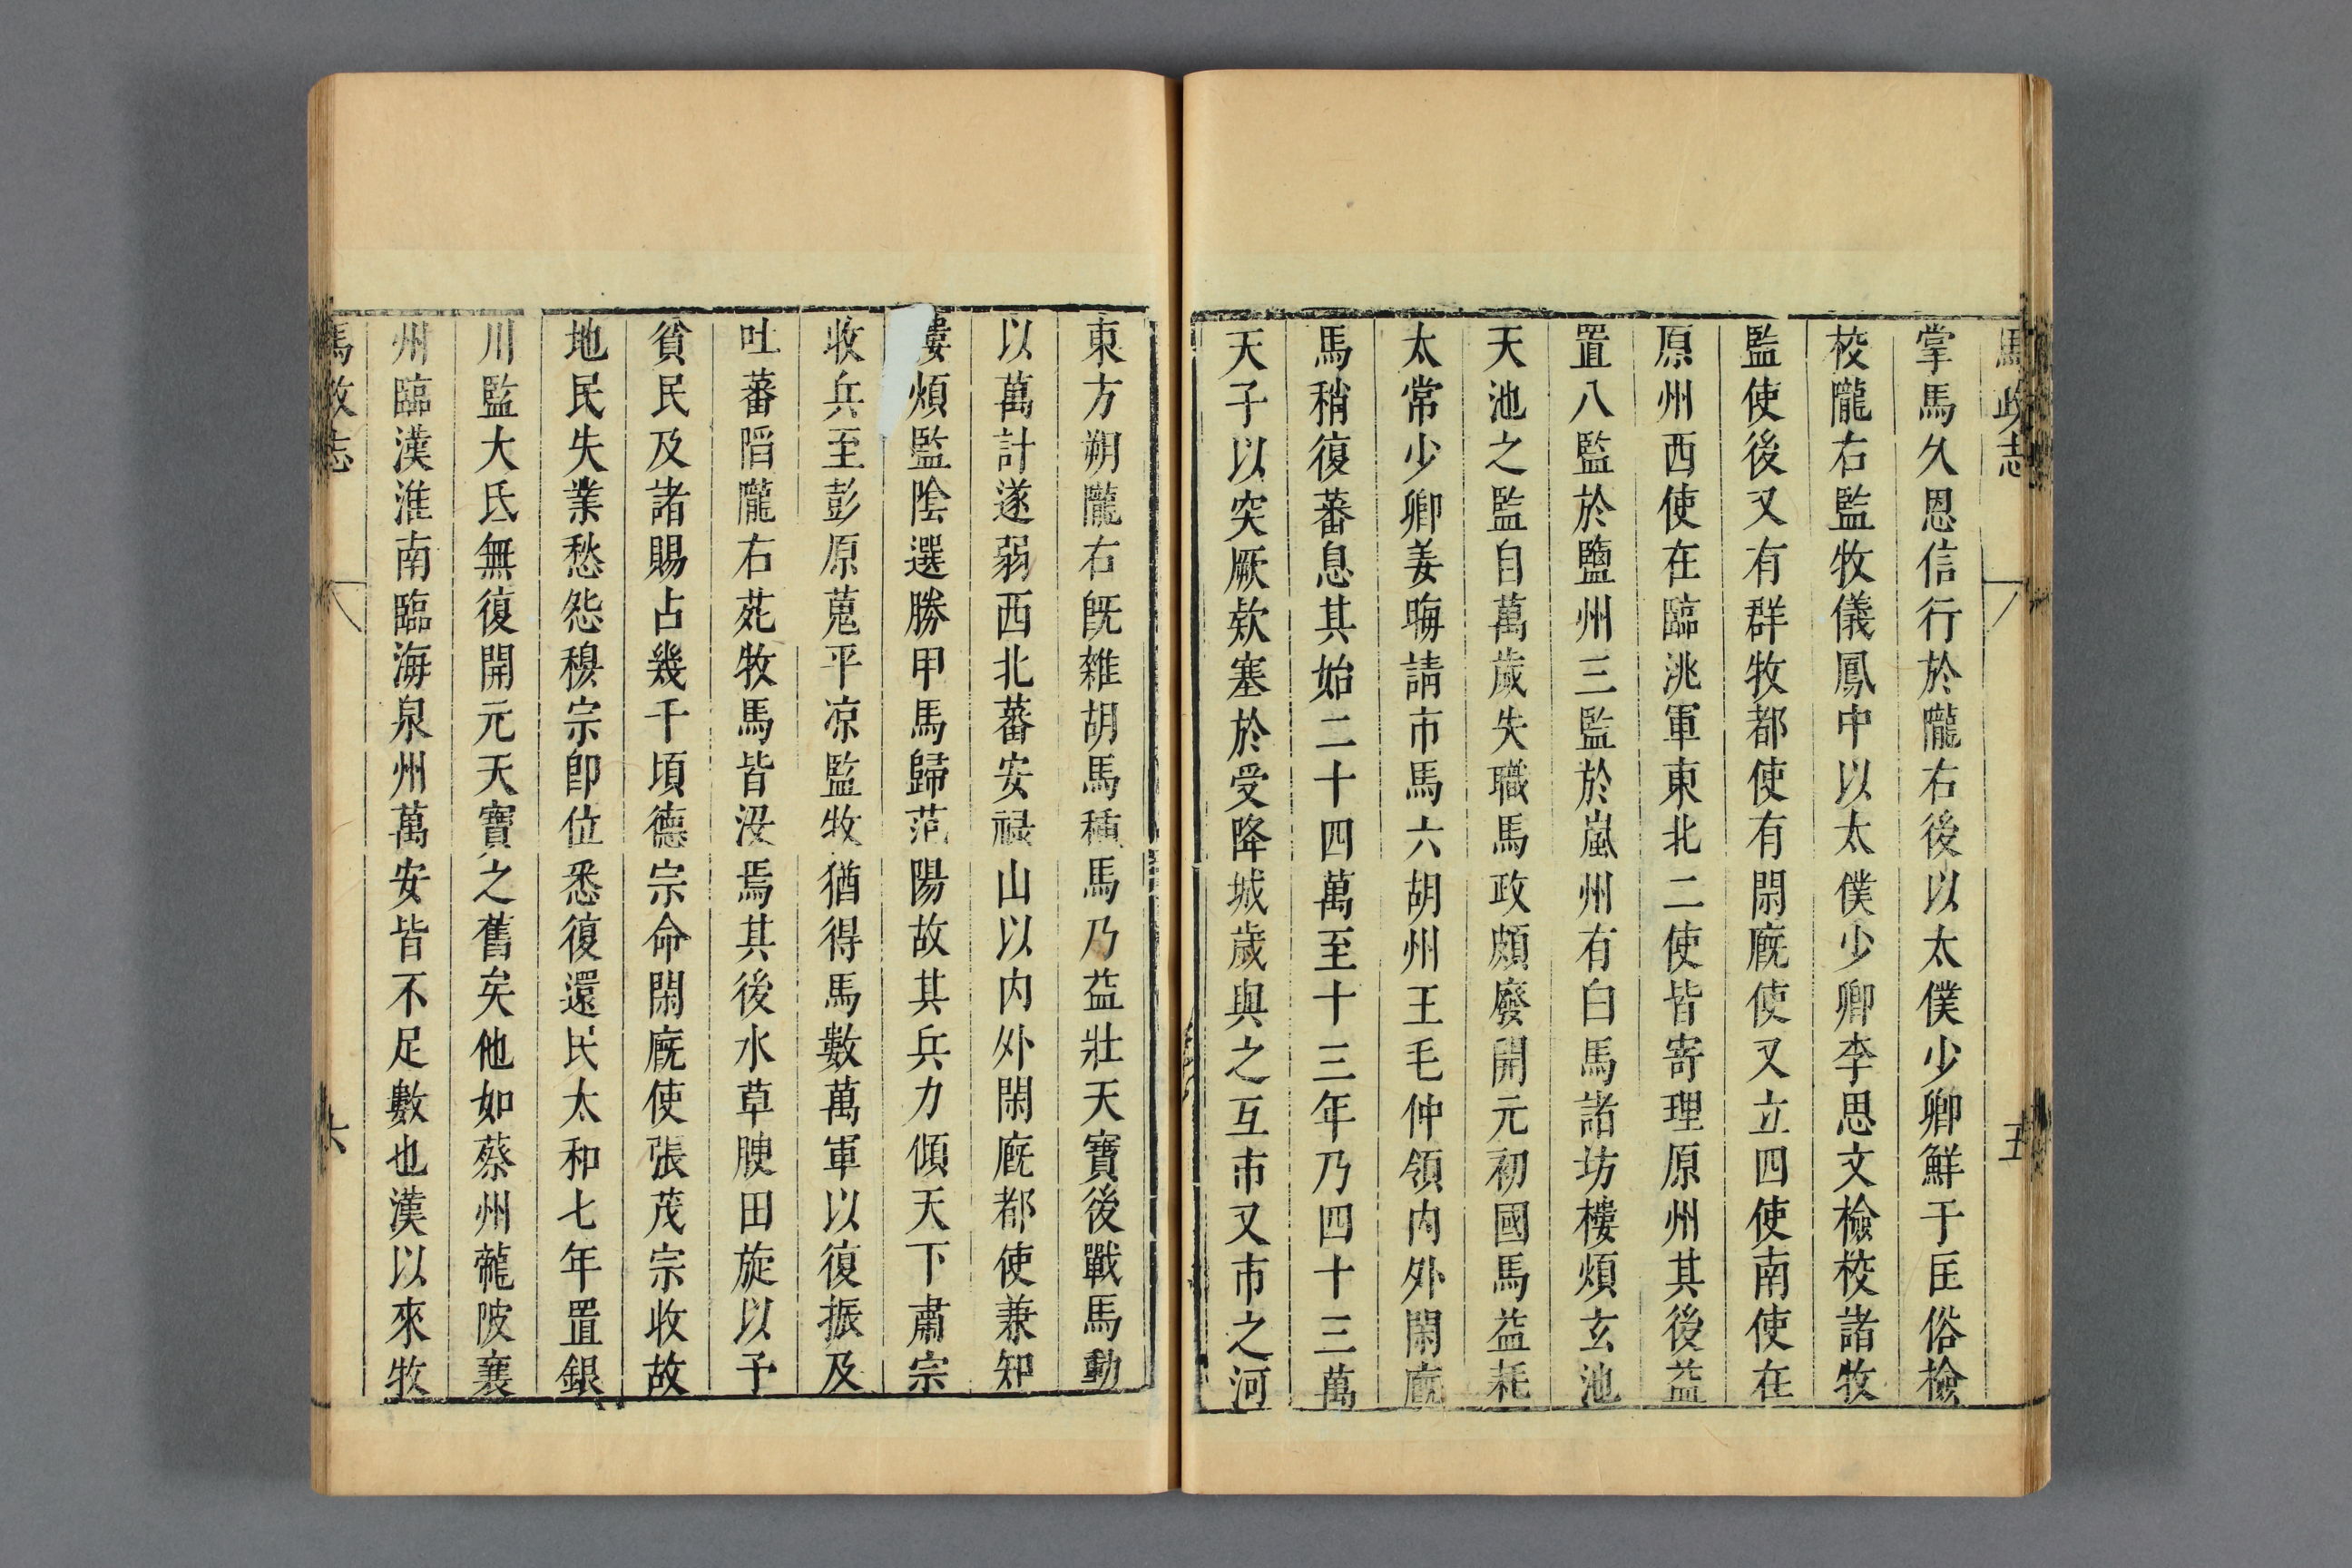 馬政志 五
掌馬久恩信行於隴右後以太僕少卿鮮于匡俗檢
校隴右監牧儀鳳中以太僕少卿李思文檢校諸牧
監使後又有群牧都使有閑廐使又立四使南使在
原州西使在臨洮軍東北二使皆寄理原州其後益
置八監於鹽州三監於嵐州有白馬諸坊樓煩玄池
天池之監自萬歲失職馬政頗廢開元初國馬益耗
太常少卿姜晦請市馬六胡州王毛仲領内外閑廐
馬稍復蕃息其始二十四萬至十三年乃四十三萬
天子以突厥欵塞於受降城歲與之互市又市之河
東方朔隴右旣雜胡馬種馬乃益壯天寶後戰馬動
以萬計遂弱西北蕃安禄山以内外閑廐都使兼知
樓煩監陰選勝甲馬歸范陽故其兵力傾天下肅宗
收兵至彭原蒐平凉監牧猶得馬數萬軍以復振及
吐蕃陷隴右苑牧馬皆没焉其後水草腴田旋以予
貧民及諸賜占幾千頃德宗命閑廐使張茂宗收故
地民失業愁怨穆宗卽位悉復還民太和七年置銀
川監大氐無復開元天寶之舊矣他如蔡州龍陂襄
州臨漢淮南臨海泉州萬安皆不足數也漢以來牧
馬政志 六